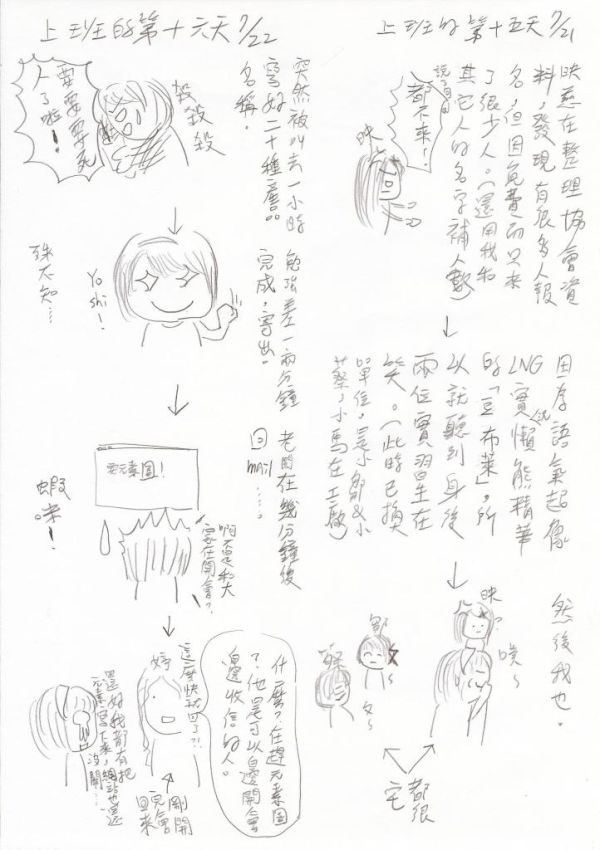 上班的第十五天 7/21
映慈在整理協會資
料，發現有很多人報
名，但因免費而只來
了很少人。（還用我和
其它人的名字補人數）
說了句
都不來！
映
因為語氣起像
LNG實況懶熊精華
的「豆布萊」，所
以就聽到身後
兩位實習生在
笑。（此時已換
單位，是小鄒&小
蔡，小馬在工廠）
然後我也。
映
噗～
鄒
蔡
都很
宅
上班的第十六天 7/22
突然被叫去一小時
寫好二十種產品
名稱。
殺殺殺
要要要死
人了啦！
勉強差一兩分鐘
完成，寄出。
Yo
shi！
殊不知…
老闆在幾分鐘後
回mail……
要元素圖！
啊不是和大
家在開會？
蝦咪！
什麼？在趕元素圖
？他是可以邊開會
邊收信的人。
婷
這麼快就回了？！
剛開
完會
回來
還好我都有把
元素寫下來，網站也還
沒關…